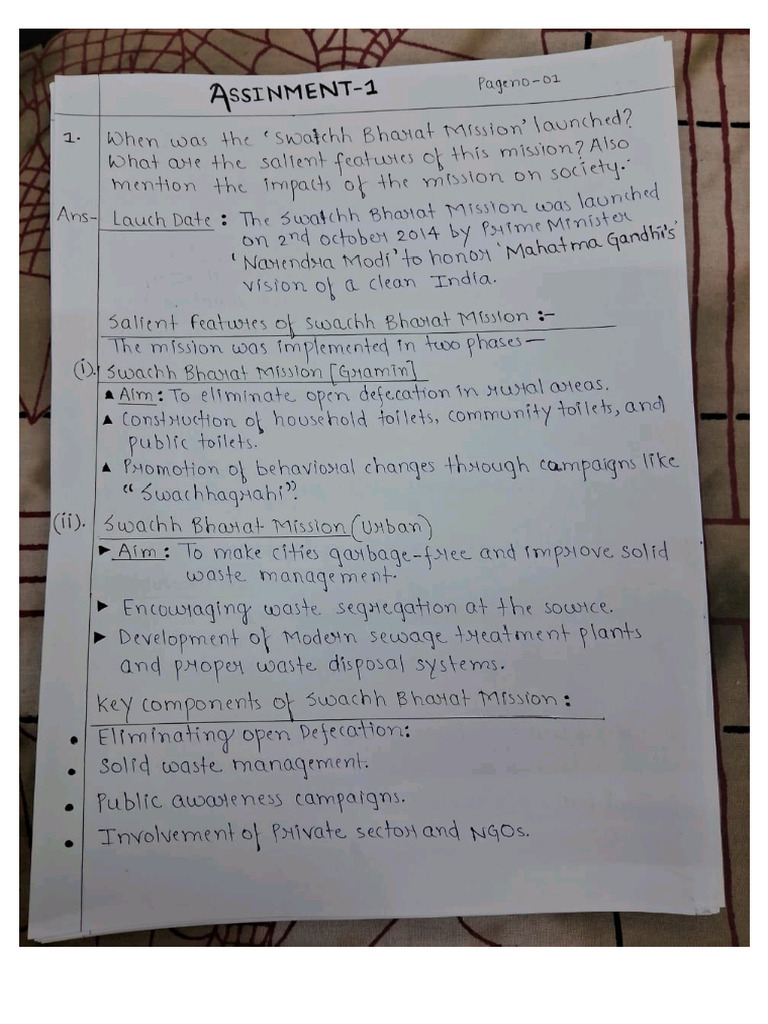 ASSINMENT-1
Pageno-01
1. When was the 'Swatchh Bharat Mission' launched?
What are the salient features of this mission? Also
mention the impacts of the mission on society.
Ans- Lauch Date : The Swatchh Bharat Mission was launched
on 2nd october 2014 by Prime Minister
'Narendra Modi' to honor 'Mahatma Gandhi's'
vision of a clean India.
Salient features of Swachh Bharat Mission :-
The mission was implemented in two phases—
(i). Swachh Bharat Mission [Gramin]
▲ Aim : To eliminate open defecation in rural areas.
▲ Construction of household toilets, community toilets, and
public toilets.
▲ Promotion of behavioral changes through campaigns like
"Swachhagrahi".
(ii). Swachh Bharat Mission (Urban)
► Aim : To make cities garbage-free and improve solid
waste management.
► Encouraging waste segregation at the source.
► Development of Modern sewage treatment plants
and proper waste disposal systems.
Key components of Swachh Bharat Mission :
• Eliminating open Defecation:
• Solid waste management.
• Public awareness campaigns.
• Involvement of Private sector and NGOs.